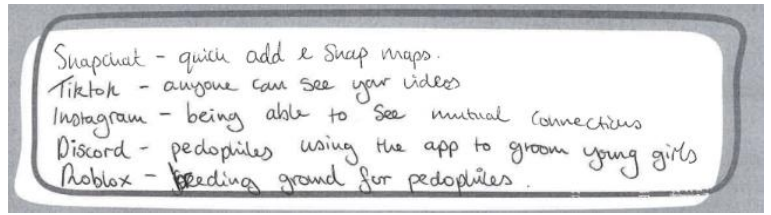 Snapchat - quick add & Snap maps.
Tiktok - anyone can see your videos
Instagram - being able to see mutual connections
Discord - pedophiles using the app to groom young girls
Roblox - breeding ground for pedophiles.